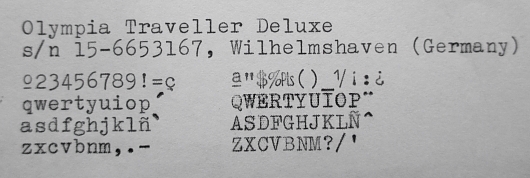 Olympia Traveller Deluxe
s/n 15-6653167, Wilhelmshaven (Germany)
º23456789!=ç ª"$%₧()_¹/¡:¿
qwertyuiop´ QWERTYUIOP¨
asdfghjklñ` ASDFGHJKLÑ^
zxcvbnm,.- ZXCVBNM?/'